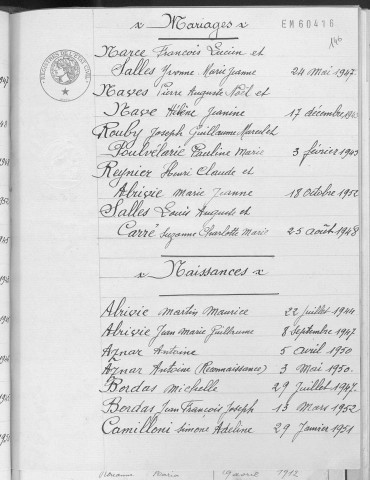 x Mariages x
EM60416
146
Marce François Lucien et
Salles Yvonne Marie Jeanne 24 Mai 1947
Naves Pierre Auguste Noël et
Nave Hélène Jeanine 17 décembre
Rouby Joseph Guillaume Marcel et
Poulvélarie Pauline Marie 3 février 1943
Reynier Henri Claude et
Abrivie Marie Jeanne 18 octobre 1952
Salles Louis Auguste et
Carré Suzanne Charlotte Marie 25 août 1948
x Naissances x
Abrivie Martin Maurice 22 juillet 1944
Abrivie Jean Marie Guillaume 8 septembre 1947
Aznar Antoine 5 avril 1950
Aznar Antoine (Reconnaissance) 3 mai 1950
Bordas Michelle 29 juillet 1947
Bordas Jean François Joseph 13 Mars 1952
Camilloni Simone Adeline 29 Janvier 1951
avril 1912